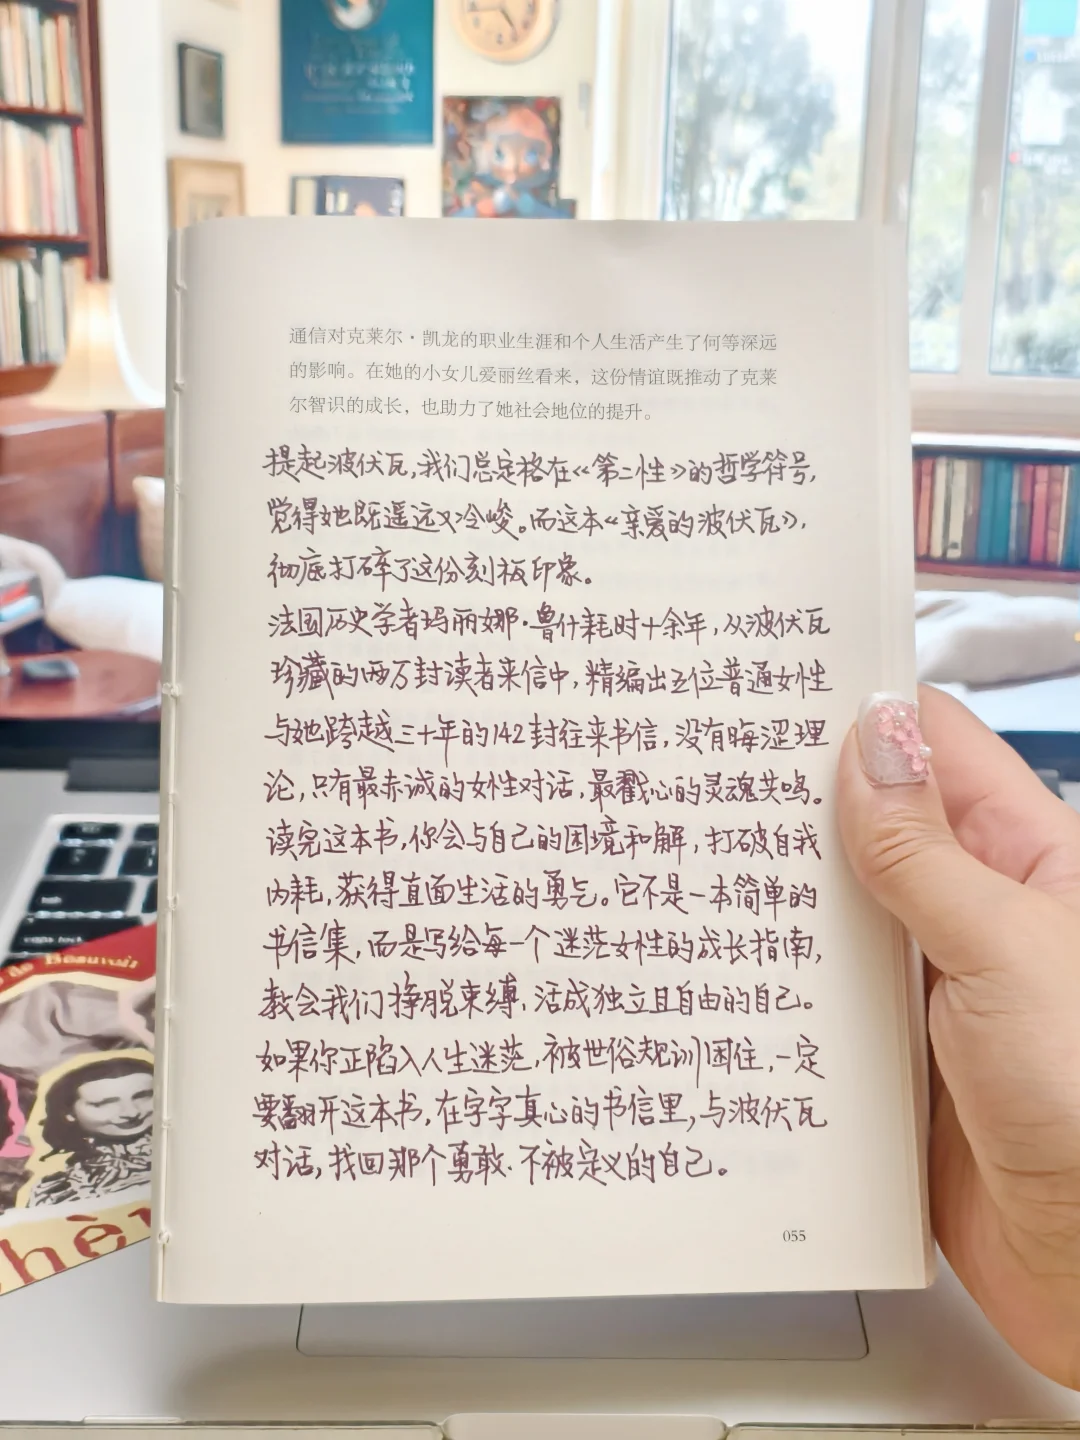 通信对克莱尔·凯龙的职业生涯和个人生活产生了何等深远
的影响。在她的小女儿爱丽丝看来，这份情谊既推动了克莱
尔智识的成长，也助力了她社会地位的提升。
提起波伏瓦,我们总定格在《第二性》的哲学符号,
觉得她既遥远又冷峻。而这本《亲爱的波伏瓦》,
彻底打碎了这份刻板印象。
法国历史学者玛丽娜·鲁什耗时十余年,从波伏瓦
珍藏的两万封读者来信中,精编出五位普通女性
与她跨越三十年的142封往来书信,没有晦涩理
论,只有最赤诚的女性对话,最戳心的灵魂共鸣。
读完这本书,你会与自己的困境和解,打破自我
内耗,获得直面生活的勇气。它不是一本简单的
书信集,而是写给每一个迷茫女性的成长指南,
教会我们挣脱束缚,活成独立且自由的自己。
如果你正陷入人生迷茫,被世俗规训困住,一定
要翻开这本书,在字字真心的书信里,与波伏瓦
对话,找回那个勇敢、不被定义的自己。
055
de Beauvoir
tab
caps lock